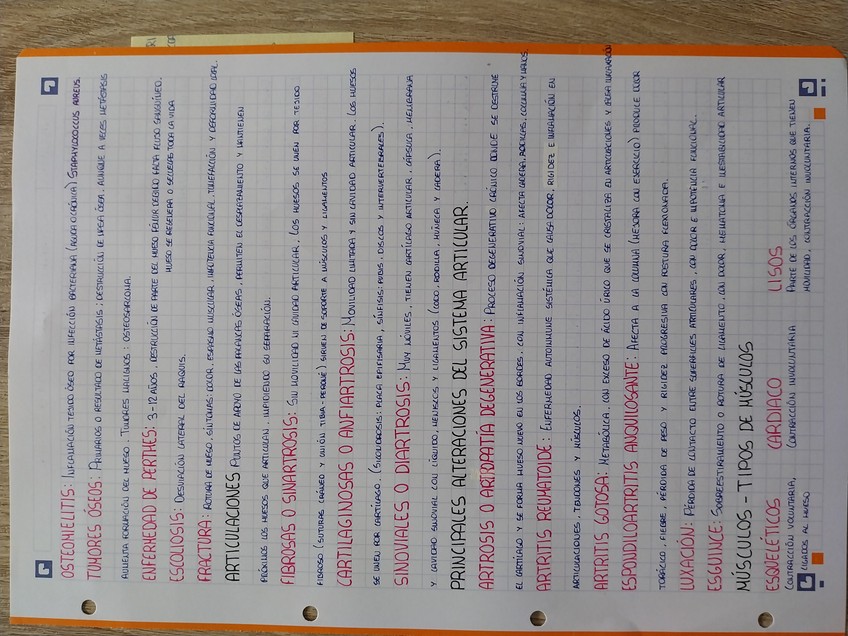 OSTEOMIELITIS: INFLAMACIÓN TEJIDO ÓSEO POR INFECCIÓN BACTERIANA (AGUDA O CRÓNICA) STAPHYLOCOCCUS AUREUS.
TUMORES ÓSEOS: PRIMARIOS O RESULTADO DE METÁSTASIS: DESTRUCCIÓN DE MASA ÓSEA, AUNQUE A VECES METÁSTASIS
AUMENTA FORMACIÓN DEL HUESO, TUMORES MALIGNOS: OSTEOSARCOMA.
ENFERMEDAD DE PERTHES: 3-12 AÑOS, DESTRUCCIÓN DE PARTE DEL HUESO FÉMUR DEBIDO FALTA FLUJO SANGUÍNEO.
HUESO SE REGENERA O SECUELAS TODA LA VIDA
ESCOLIOSIS: DESVIACIÓN LATERAL DEL RAQUIS.
FRACTURA: ROTURA DE HUESO, SÍNTOMAS: DOLOR, ESPASMO MUSCULAR, IMPOTENCIA FUNCIONAL, TUMEFACCIÓN Y DEFORMIDAD LOCAL.
ARTICULACIONES PUNTOS DE APOYO DE LAS PALANCAS ÓSEAS, PERMITEN EL DESPLAZAMIENTO Y MANTIENEN
PRÓXIMOS LOS HUESOS QUE ARTICULAN, IMPIDIENDO SU SEPARACIÓN.
FIBROSAS O SINARTROSIS: SIN MOVILIDAD NI CAVIDAD ARTICULAR, LOS HUESOS SE UNEN POR TEJIDO
FIBROSO (SUTURAS CRÁNEO Y UNIÓN TIBIA-PERONÉ) SIRVEN DE SOPORTE A MÚSCULOS Y LIGAMENTOS
CARTILAGINOSAS O ANFIARTROSIS: MOVILIDAD LIMITADA Y SIN CAVIDAD ARTICULAR, LOS HUESOS
SE UNEN POR CARTÍLAGO, (SINCONDROSIS: PLACA EPIFISARIA, SÍNFISIS: PUBIS, DISCOS Y INTERVERTEBRALES).
SINOVIALES O DIARTROSIS: MUY MÓVILES, TIENEN CARTÍLAGO ARTICULAR, CÁPSULA, MEMBRANA
Y CAVIDAD SINOVIAL CON LÍQUIDO, MENISCOS Y LIGAMENTOS (CODO, RODILLA, MUÑECA Y CADERA).
PRINCIPALES ALTERACIONES DEL SISTEMA ARTICULAR.
ARTROSIS O ARTROPATÍA DEGENERATIVA: PROCESO DEGENERATIVO CRÓNICO DONDE SE DESTRUYE
EL CARTÍLAGO Y SE FORMA HUESO NUEVO EN LOS BORDES, CON INFLAMACIÓN SINOVIAL: AFECTA CADERA, RODILLAS, COLUMNA Y MANOS.
ARTRITIS REUMATOIDE: ENFERMEDAD AUTOINMUNE SISTÉMICA QUE CAUSA DOLOR, RIGIDEZ E INFLAMACIÓN EN
ARTICULACIONES, TENDONES Y MÚSCULOS.
ARTRITIS GOTOSA: METABÓLICA, CON EXCESO DE ÁCIDO ÚRICO QUE SE CRISTALIZA EN ARTICULACIONES Y CAUSA INFLAMACIÓN
ESPONDILOARTRITIS ANQUILOSANTE: AFECTA A LA COLUMNA (MEJORA CON EJERCICIO) PRODUCE DOLOR
TORÁCICO, FIEBRE, PÉRDIDA DE PESO Y RIGIDEZ PROGRESIVA CON POSTURA FLEXIONADA.
LUXACIÓN: PÉRDIDA DE CONTACTO ENTRE SUPERFICIES ARTICULARES, CON DOLOR E IMPOTENCIA FUNCIONAL.
ESGUINCE: SOBREESTIRAMIENTO O ROTURA DE LIGAMENTO, CON DOLOR, HEMATOMA E INESTABILIDAD ARTICULAR
MÚSCULOS - TIPOS DE MÚSCULOS
ESQUELÉTICOS CARDIACO LISOS
CONTRACCIÓN VOLUNTARIA, CONTRACCIÓN INVOLUNTARIA PARTE DE LOS ÓRGANOS INTERNOS QUE TIENEN
LIGADOS AL HUESO MOVILIDAD, CONTRACCIÓN INVOLUNTARIA.